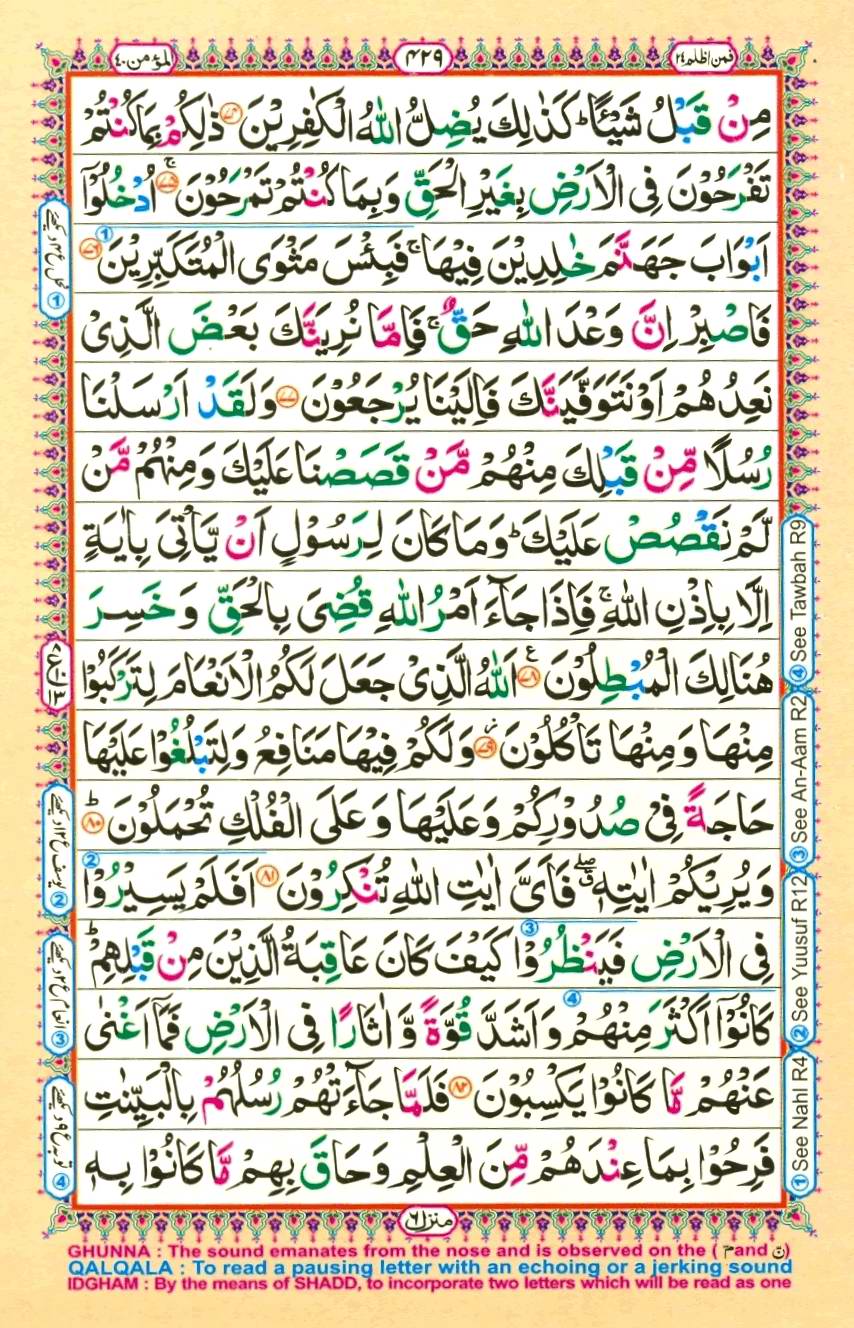 المؤمن ٤٠
۴۲۹
فمن اظلم ۲۴
مِنْ قَبْلُ شَيْـًٔا ؕ كَذٰلِكَ يُضِلُّ اللّٰهُ الْكٰفِرِيْنَ ۝۷۴ ذٰلِكُمْ بِمَا كُنْتُمْ
تَفْرَحُوْنَ فِى الْاَرْضِ بِغَيْرِ الْحَقِّ وَبِمَا كُنْتُمْ تَمْرَحُوْنَ ۝۷۵ ۚ اُدْخُلُوْۤا
اَبْوَابَ جَهَنَّمَ خٰلِدِيْنَ فِيْهَا ۚ فَبِئْسَ مَثْوَى الْمُتَكَبِّرِيْنَ ۝۷۶
فَاصْبِرْ اِنَّ وَعْدَ اللّٰهِ حَقٌّ ۚ فَاِمَّا نُرِيَنَّكَ بَعْضَ الَّذِىْ
نَعِدُهُمْ اَوْ نَتَوَفَّيَنَّكَ فَاِلَيْنَا يُرْجَعُوْنَ ۝۷۷ وَلَقَدْ اَرْسَلْنَا
رُسُلًا مِّنْ قَبْلِكَ مِنْهُمْ مَّنْ قَصَصْنَا عَلَيْكَ وَمِنْهُمْ مَّنْ
لَّمْ نَقْصُصْ عَلَيْكَ ؕ وَمَا كَانَ لِرَسُوْلٍ اَنْ يَّاْتِىَ بِاٰيَةٍ
اِلَّا بِاِذْنِ اللّٰهِ ۚ فَاِذَا جَآءَ اَمْرُ اللّٰهِ قُضِىَ بِالْحَقِّ وَخَسِرَ
هُنَالِكَ الْمُبْطِلُوْنَ ۝۷۸ ع اَللّٰهُ الَّذِىْ جَعَلَ لَكُمُ الْاَنْعَامَ لِتَرْكَبُوْا
مِنْهَا وَمِنْهَا تَاْكُلُوْنَ ۝۷۹ ز وَلَكُمْ فِيْهَا مَنَافِعُ وَلِتَبْلُغُوْا عَلَيْهَا
حَاجَةً فِىْ صُدُوْرِكُمْ وَعَلَيْهَا وَعَلَى الْفُلْكِ تُحْمَلُوْنَ ۝۸۰ ؕ
وَيُرِيْكُمْ اٰيٰتِهٖ ۖ فَاَىَّ اٰيٰتِ اللّٰهِ تُنْكِرُوْنَ ۝۸۱ اَفَلَمْ يَسِيْرُوْا
فِى الْاَرْضِ فَيَنْظُرُوْا كَيْفَ كَانَ عَاقِبَةُ الَّذِيْنَ مِنْ قَبْلِهِمْ ؕ
كَانُوْۤا اَكْثَرَ مِنْهُمْ وَاَشَدَّ قُوَّةً وَّاٰثَارًا فِى الْاَرْضِ فَمَاۤ اَغْنٰى
عَنْهُمْ مَّا كَانُوْا يَكْسِبُوْنَ ۝۸۲ فَلَمَّا جَآءَتْهُمْ رُسُلُهُمْ بِالْبَيِّنٰتِ
فَرِحُوْا بِمَا عِنْدَهُمْ مِّنَ الْعِلْمِ وَحَاقَ بِهِمْ مَّا كَانُوْا بِهٖ
① See Nahl R4
② See Yuusuf R12
③ See An-Aam R2
④ See Tawbah R9
① نحل ع ۴ دیکھئے
② یوسف ع ۱۲ دیکھئے
③ انعام ع ۲ دیکھئے
④ توبہ ع ۹ دیکھئے
منزل ۶
GHUNNA : The sound emanates from the nose and is observed on the ( م and ن)
QALQALA : To read a pausing letter with an echoing or a jerking sound
IDGHAM : By the means of SHADD, to incorporate two letters which will be read as one